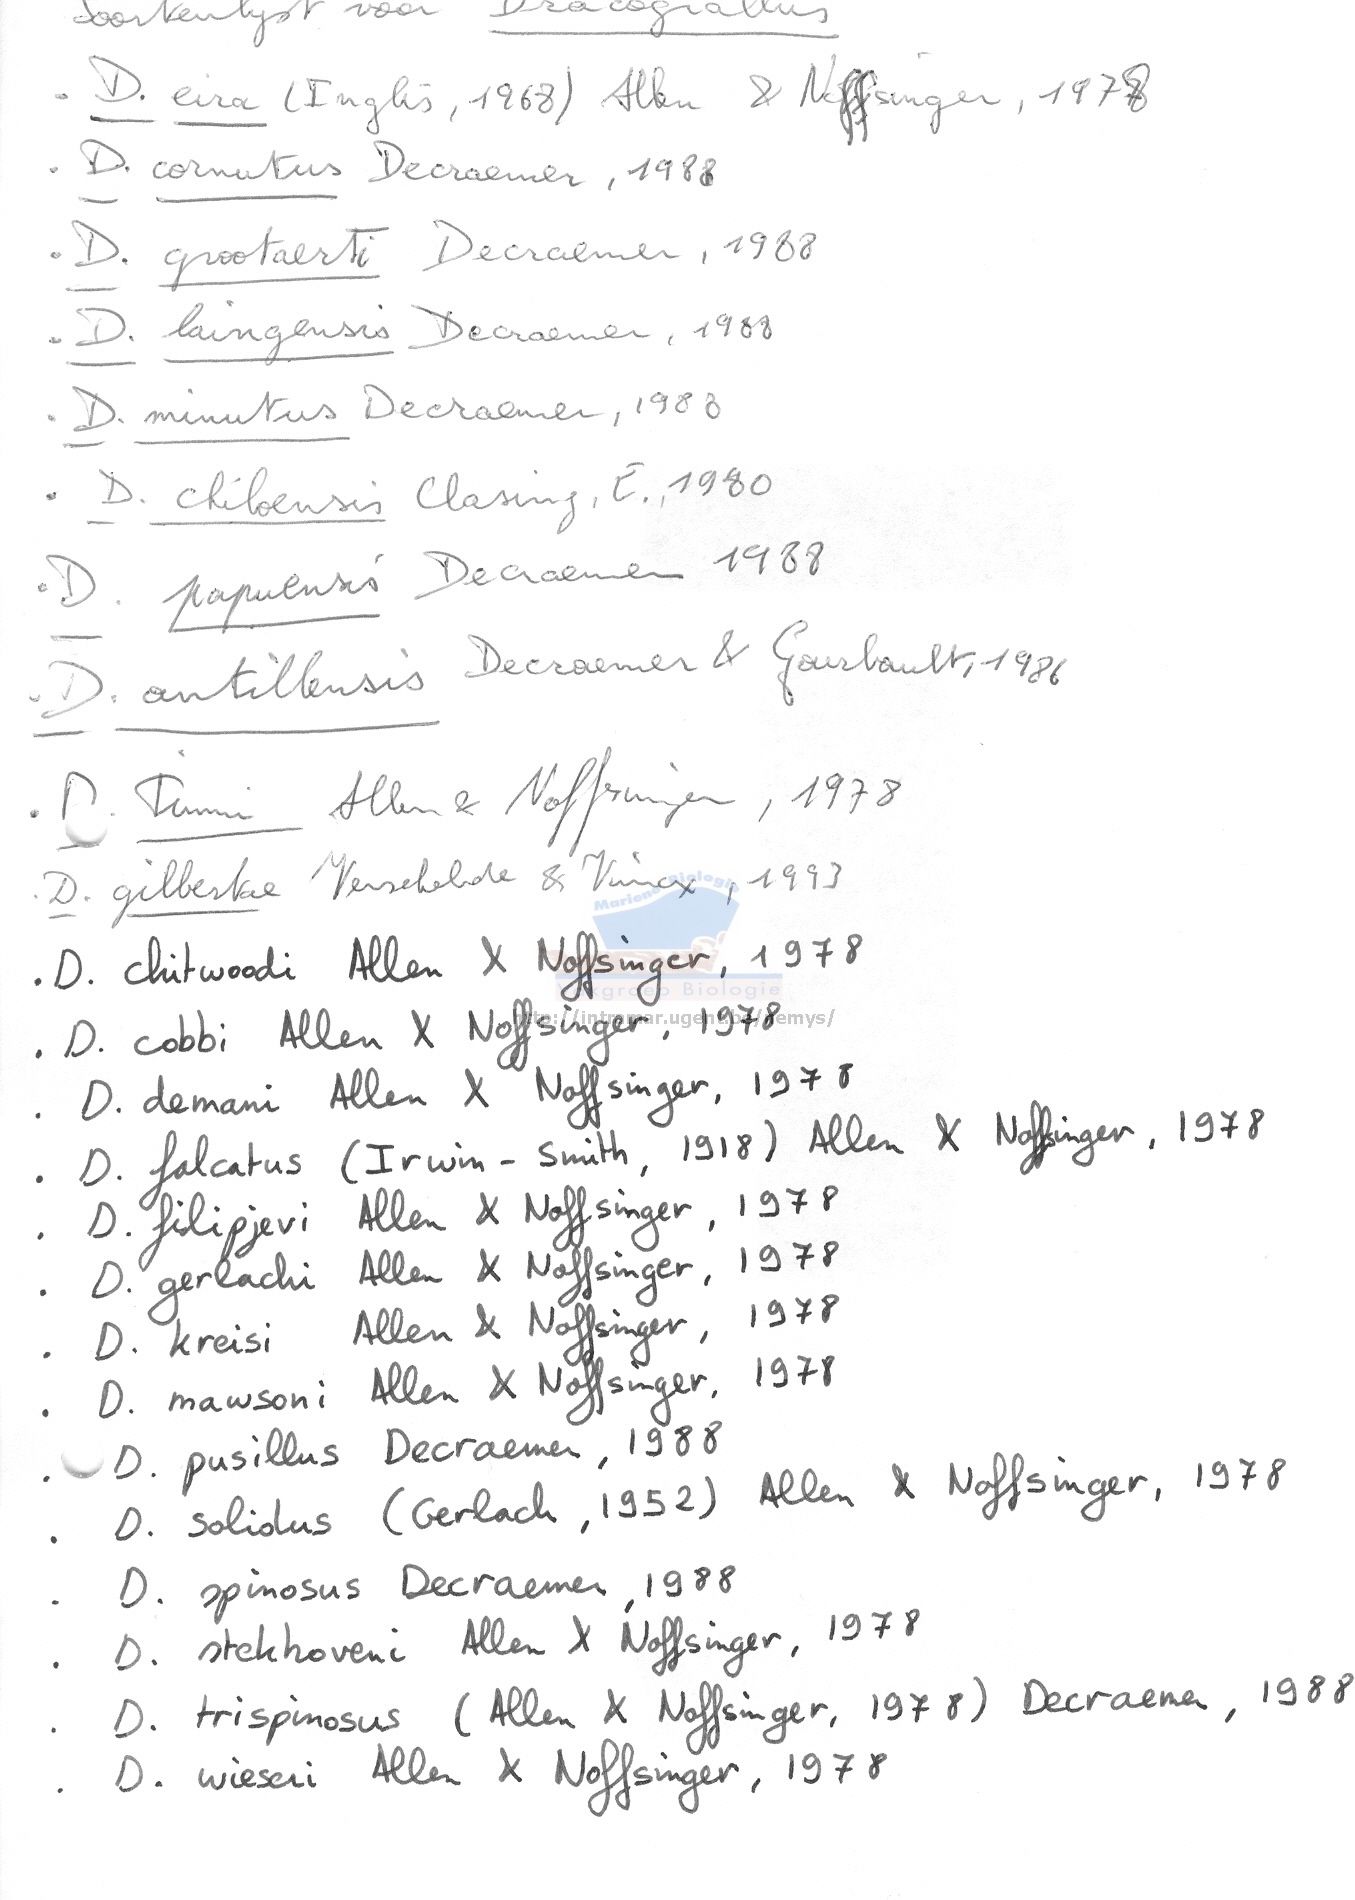 Soortenlijst voor Dracograllus
- D. eira (Inglis, 1968) Allen & Noffsinger, 1978
. D. cornutus Decraemer, 1988
. D. grootaerti Decraemer, 1988
. D. laingensis Decraemer, 1988
. D. minutus Decraemer, 1988
. D. chiloensis Clasing, E., 1980
. D. papuensis Decraemer 1988
. D. antillensis Decraemer & Gourbault, 1986
. D. Timmi Allen & Noffsinger, 1978
. D. gilbertae Verschelde & Vincx, 1993
. D. chitwoodi Allen & Noffsinger, 1978
. D. cobbi Allen & Noffsinger, 1978
. D. demani Allen & Noffsinger, 1978
. D. falcatus (Irwin-Smith, 1918) Allen & Noffsinger, 1978
. D. filipjevi Allen & Noffsinger, 1978
. D. gerlachi Allen & Noffsinger, 1978
. D. kreisi Allen & Noffsinger, 1978
. D. mawsoni Allen & Noffsinger, 1978
. D. pusillus Decraemer, 1988
. D. solidus (Gerlach, 1952) Allen & Noffsinger, 1978
. D. spinosus Decraemer, 1988
. D. stekhoveni Allen & Noffsinger, 1978
. D. trispinosus (Allen & Noffsinger, 1978) Decraemer, 1988
. D. wieseri Allen & Noffsinger, 1978
Mariene Biologie
Biologie